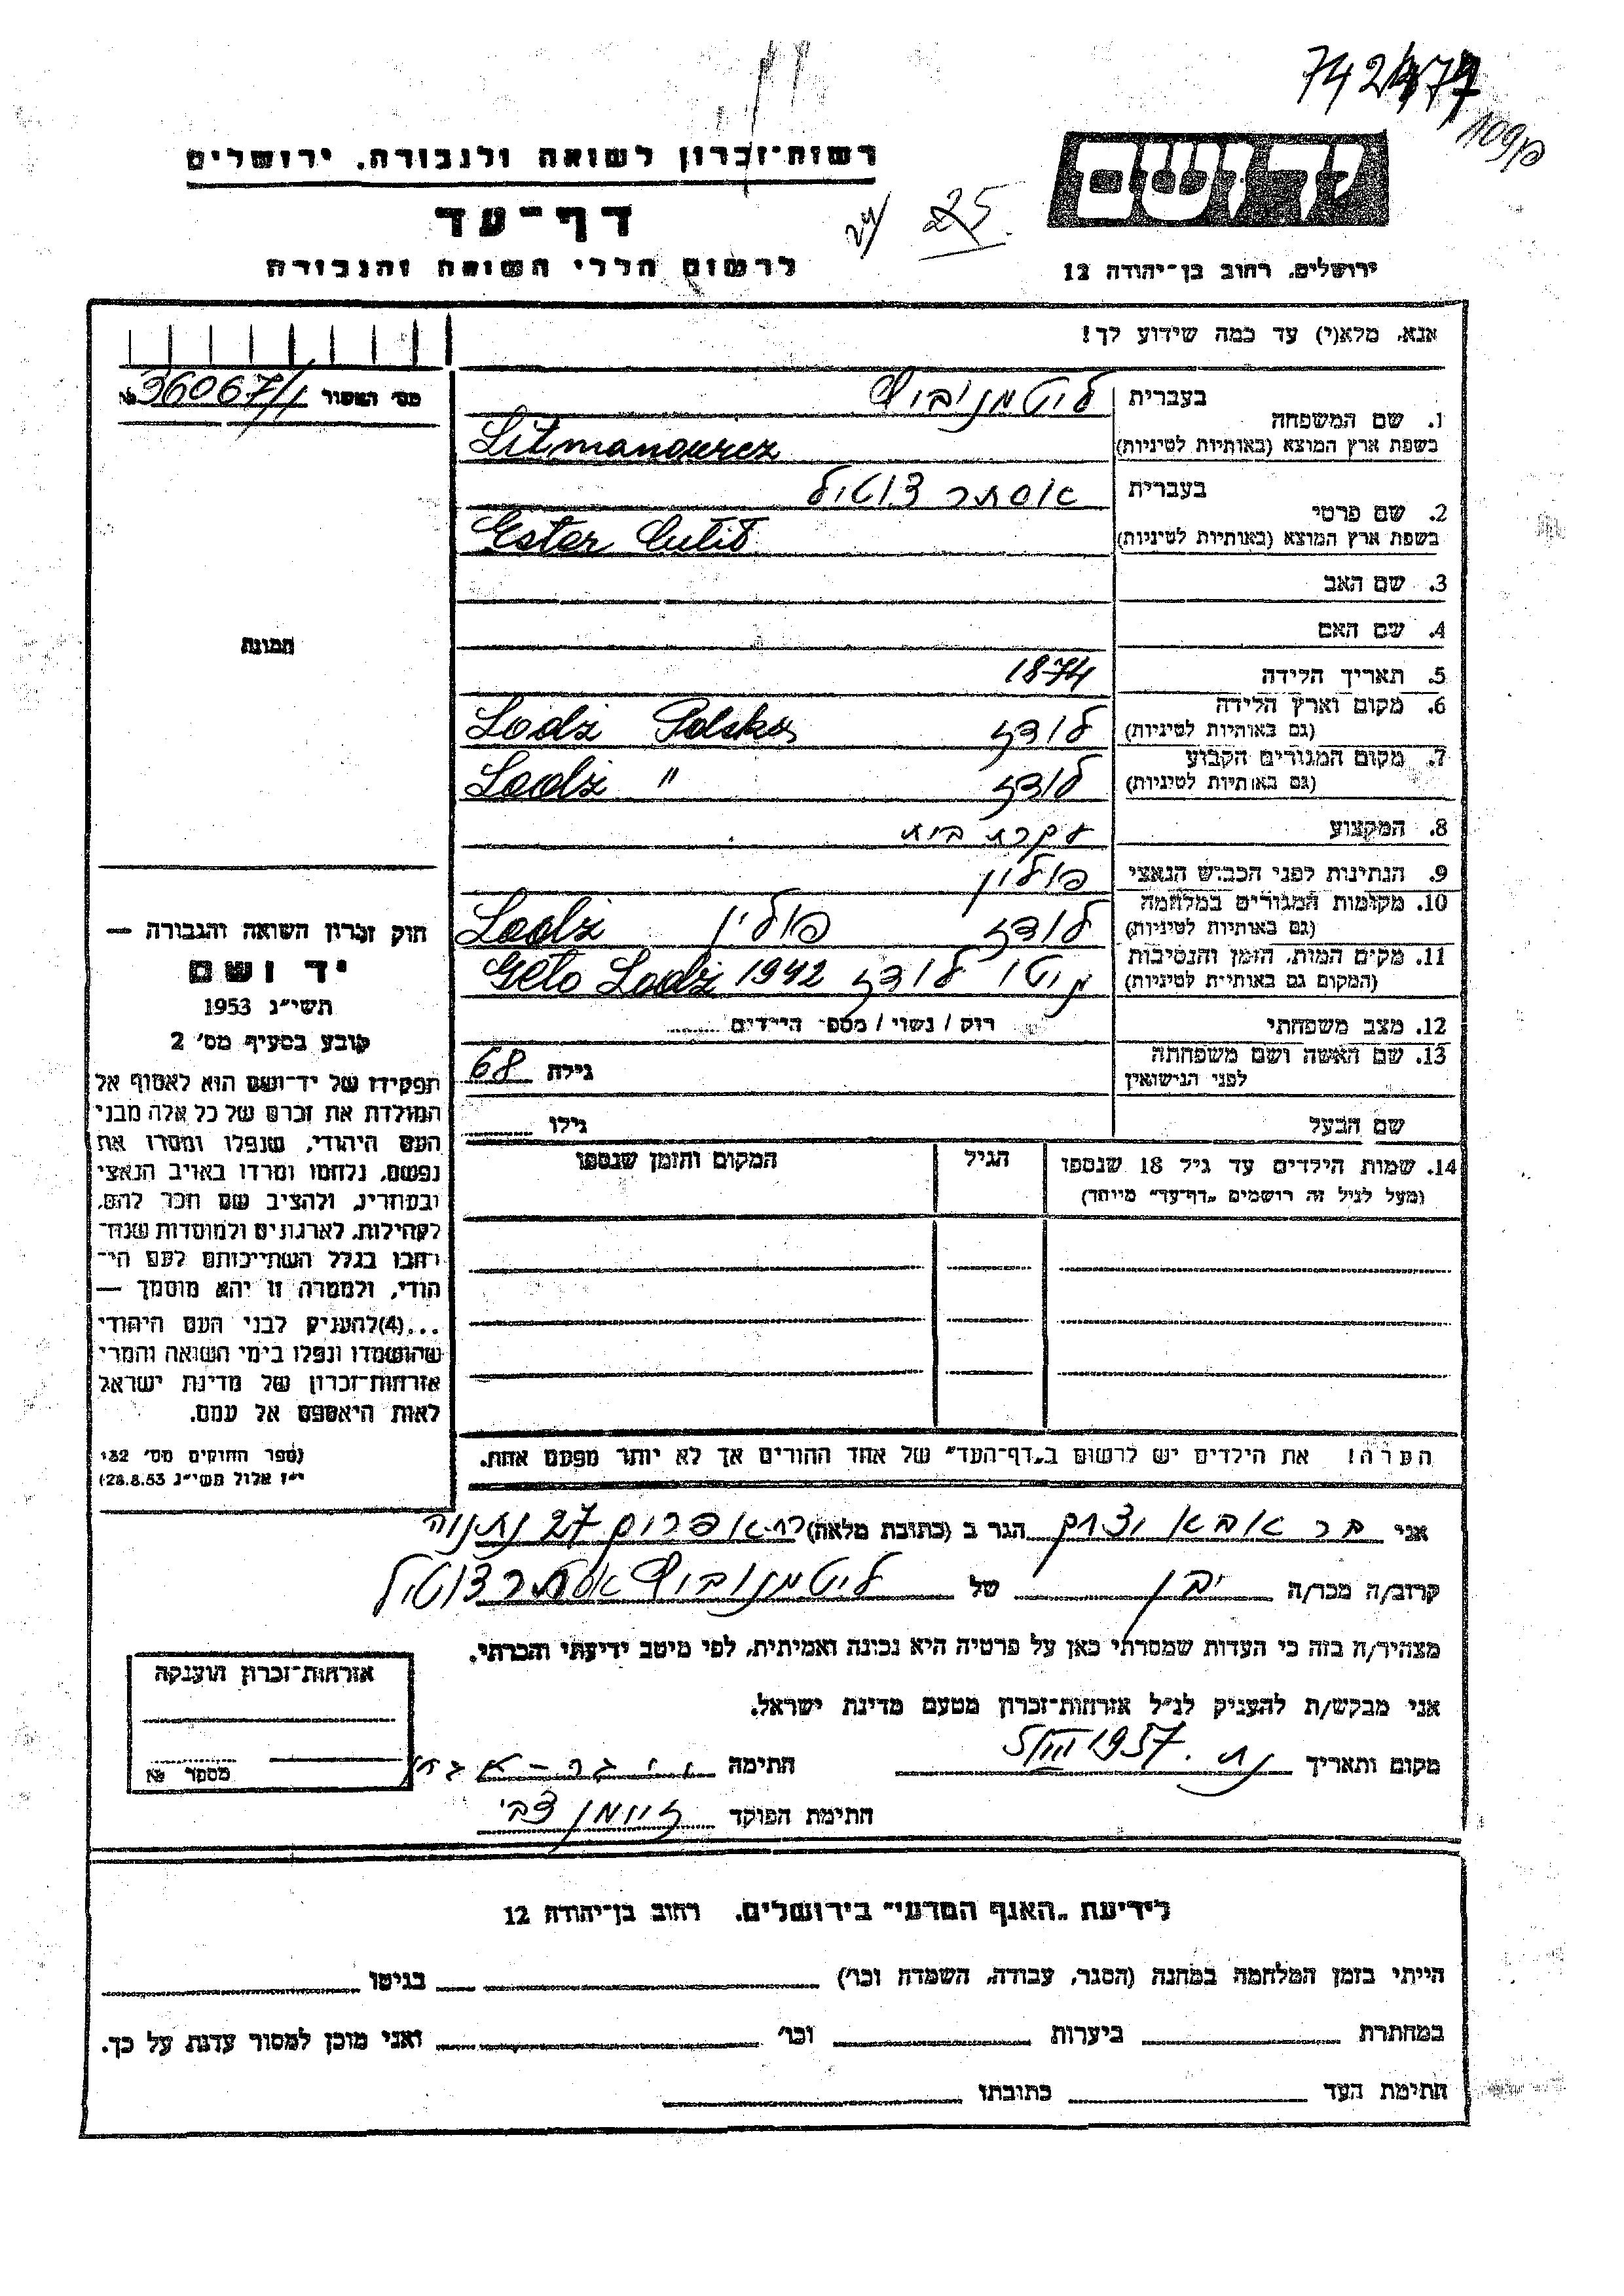 742
רשות־זכרון לשואה ולגבורה, ירושלים
יד ושם
דף־עד
24/ 25
לרשום חללי השואה והגבורה
ירושלים, רחוב בן־יהודה 12
אנא, מלא(י) עד כמה שידוע לך!
מס׳ האסור 36067/1
בעברית ליטמנוביץ
1. שם המשפחה
בשפת ארץ המוצא (באותיות לטיניות) Litmanowicz
בעברית אסתר
2. שם פרטי
בשפת ארץ המוצא (באותיות לטיניות) Ester
3. שם האב
4. שם האם
תמונה
5. תאריך הלידה 1874
6. מקום וארץ הלידה
(גם באותיות לטיניות) לודז Lodz Polska
7. מקום המגורים הקבוע
(גם באותיות לטיניות) לודז Lodz "
8. המקצוע עקרת בית
9. הנתינות לפני הכבוש הנאצי פולין
10. מקומות המגורים במלחמה
(גם באותיות לטיניות) לודז פולין Lodz
11. מקום המות, הזמן והנסיבות
(המקום גם באותיות לטיניות) גיטו לודז 1942 Geto Lodz
12. מצב משפחתי רוק / נשוי / מספר הילדים
13. שם האשה ושם משפחתה
לפני הנישואין גילה 68
שם הבעל גילו
14. שמות הילדים עד גיל 18 שנספו הגיל המקום והזמן שנספו
(מעל לגיל זה רושמים „דף־עד" מיוחד)
הערה! את הילדים יש לרשום ב„דף־העד" של אחד ההורים אך לא יותר מפעם אחת.
חוק זכרון השואה והגבורה —
יד ושם
תשי״ג 1953
קובע בסעיף מס׳ 2
תפקידו של יד־ושם הוא לאסוף אל
המולדת את זכרם של כל אלה מבני
העם היהודי, שנפלו ומסרו את
נפשם, נלחמו ומרדו באויב הנאצי
ובעוזריו, ולהציב שם וזכר להם,
לקהילות, לארגונים ולמוסדות שנח־
רבו בגלל השתייכותם לעם הי־
הודי, ולמטרה זו יהא מוסמך —
...(4)להעניק לבני העם היהודי
שהושמדו ונפלו בימי השואה והמרי
אזרחות־זכרון של מדינת ישראל
לאות היאספם אל עמם.
(ספר החוקים מס׳ 132
י״ז אלול תשי״ג 28.8.53)
אני בר אבא הגר ב (כתובת מלאה) 27 נתניה
קרוב/ה מכר/ה של ליטמנוביץ אסתר
מצהיר/ה בזה כי העדות שמסרתי כאן על פרטיה היא נכונה ואמיתית, לפי מיטב ידיעתי והכרתי.
אני מבקש/ת להעניק לנ״ל אזרחות־זכרון מטעם מדינת ישראל.
מקום ותאריך 1957 חתימה
חתימת הפוקד צבי
אזרחות־זכרון הוענקה
מספר
לידיעת „האגף המדעי" בירושלים, רחוב בן־יהודה 12
הייתי בזמן המלחמה במחנה (הסגר, עבודה, השמדה וכו׳) בגיטו
במחתרת ביערות וכו׳ ואני מוכן למסור עדות על כך.
חתימת העד כתובתו